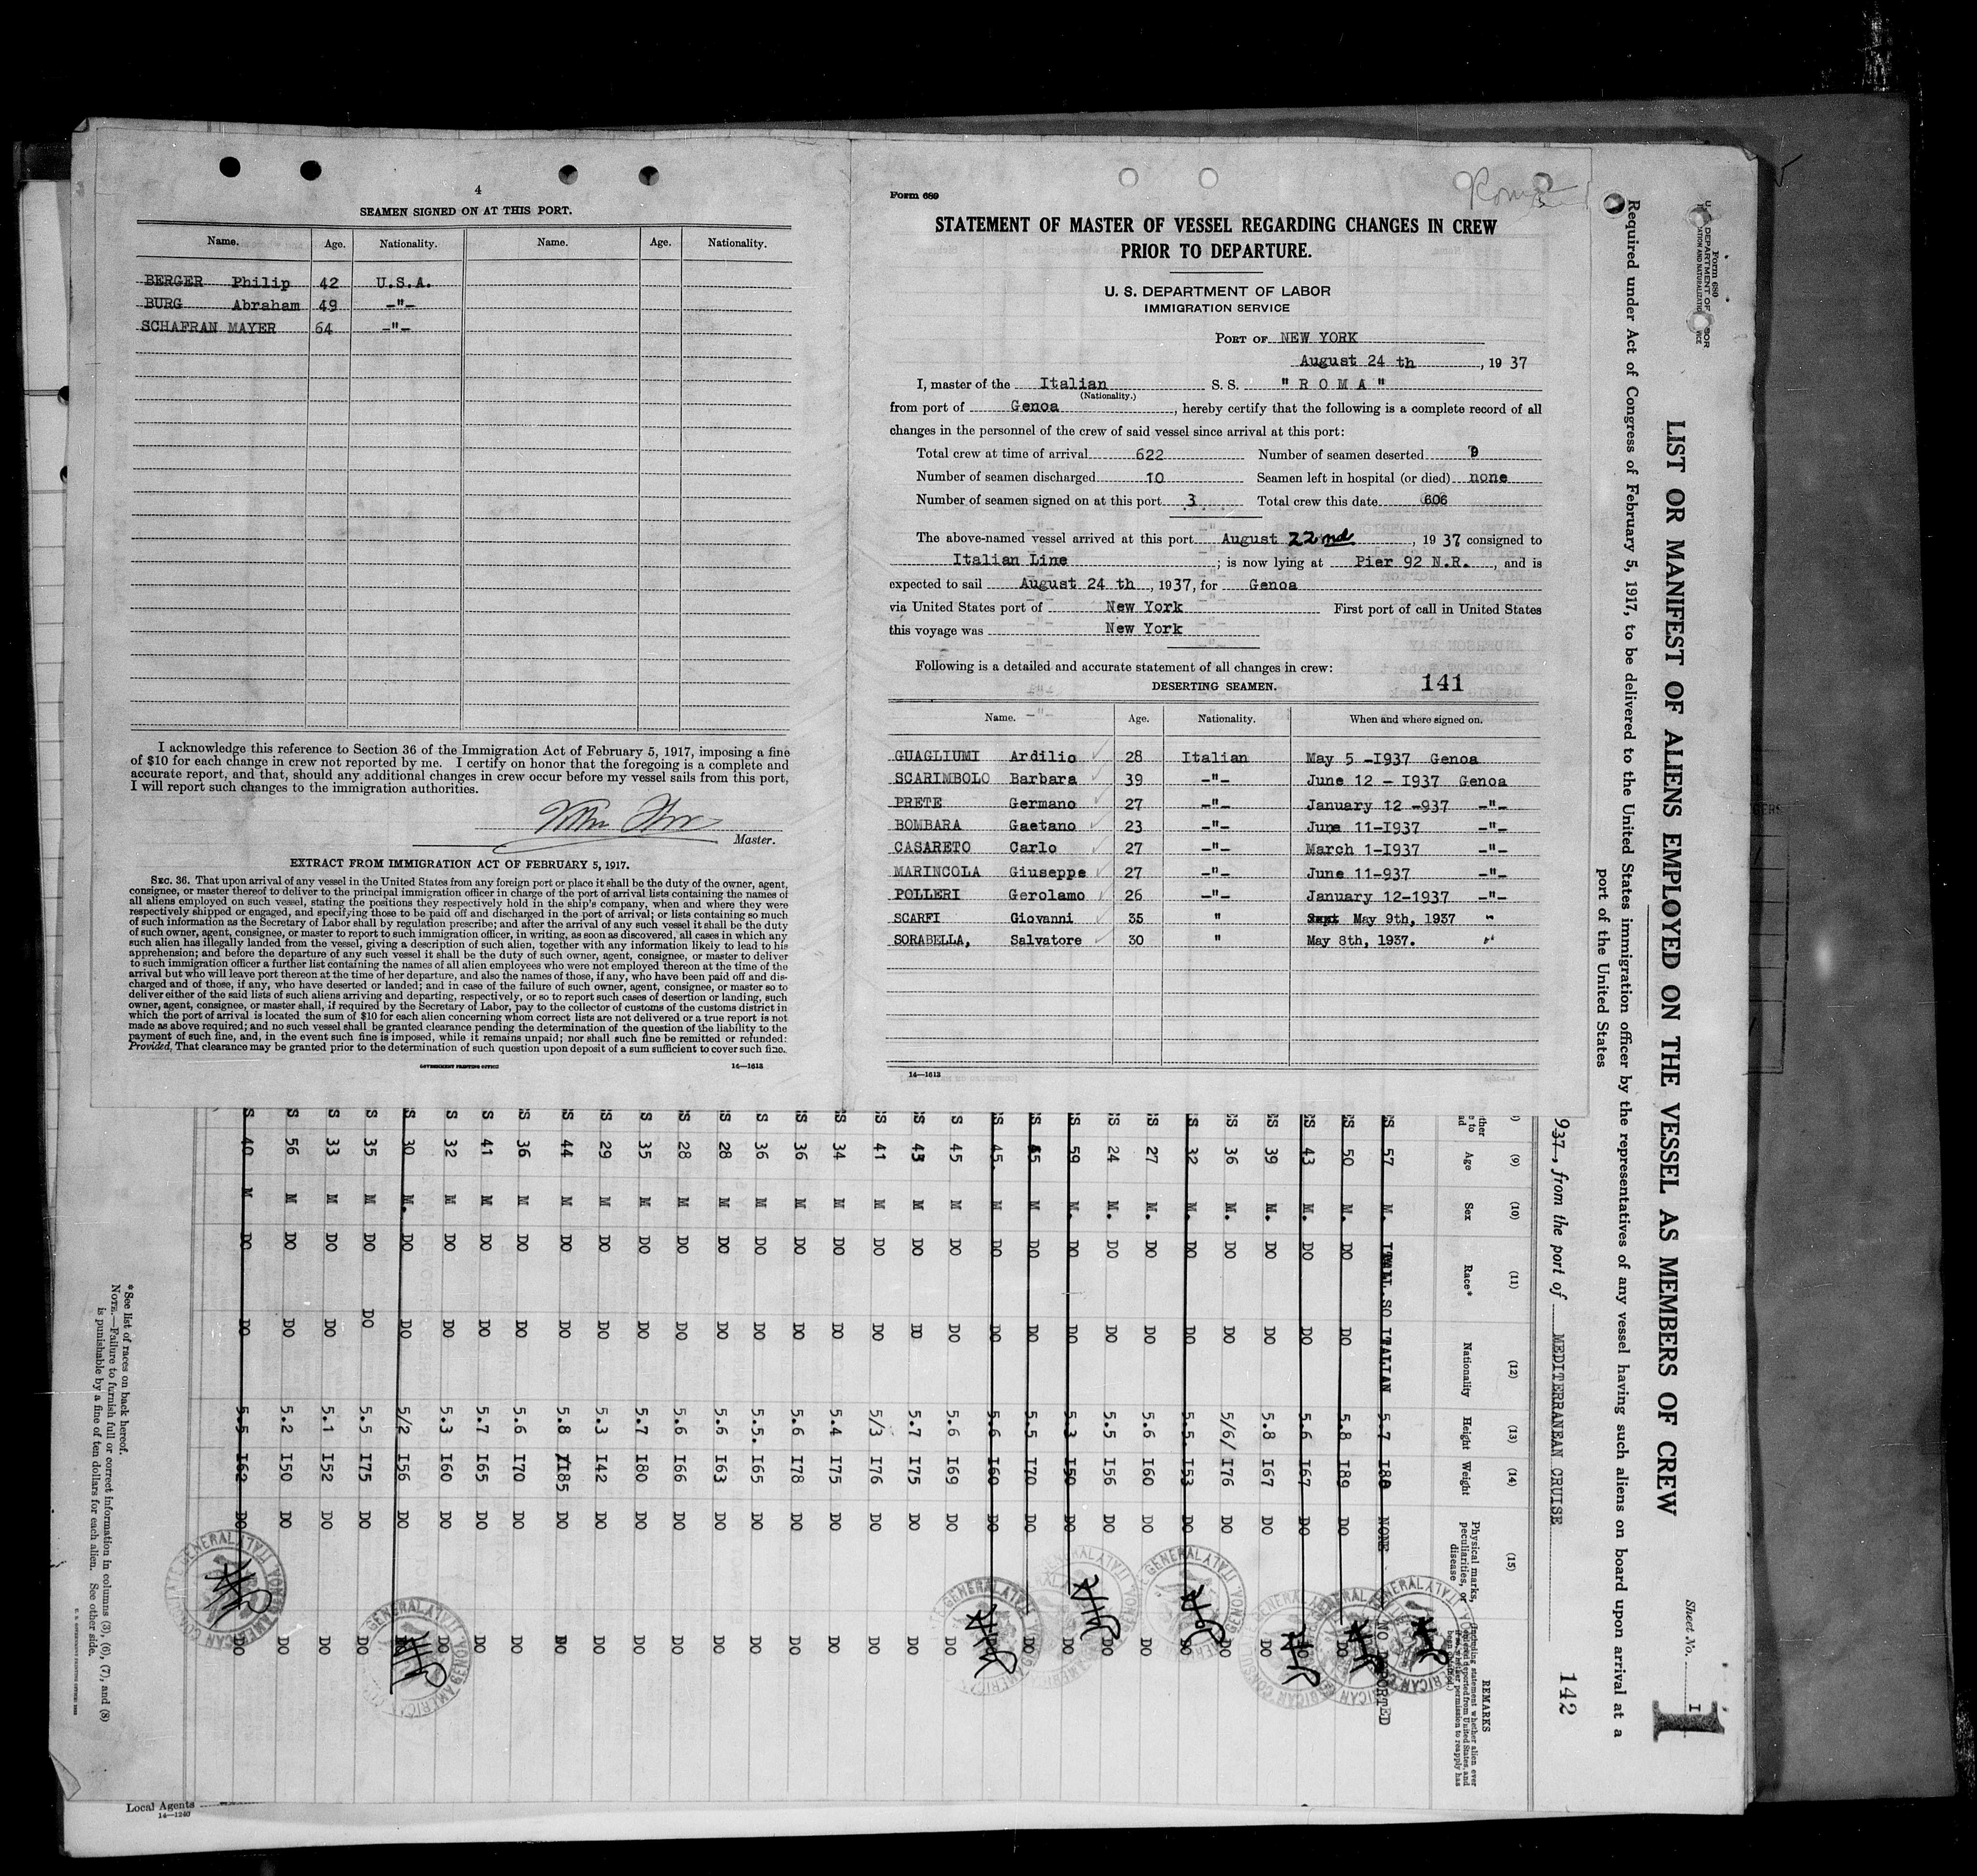 4
SEAMEN SIGNED ON AT THIS PORT.
Name. Age. Nationality. Name. Age. Nationality.
BERGER Philip 42 U.S.A.
BURG Abraham 49 -"-
SCHAFRAN MAYER 64 -"-
I acknowledge this reference to Section 36 of the Immigration Act of February 5, 1917, imposing a fine
of $10 for each change in crew not reported by me. I certify on honor that the foregoing is a complete and
accurate report, and that, should any additional changes in crew occur before my vessel sails from this port,
I will report such changes to the immigration authorities.
Master.
EXTRACT FROM IMMIGRATION ACT OF FEBRUARY 5, 1917.
SEC. 36. That upon arrival of any vessel in the United States from any foreign port or place it shall be the duty of the owner, agent,
consignee, or master thereof to deliver to the principal immigration officer in charge of the port of arrival lists containing the names of
all aliens employed on such vessel, stating the positions they respectively hold in the ship's company, when and where they were
respectively shipped or engaged, and specifying those to be paid off and discharged in the port of arrival; or lists containing so much
of such information as the Secretary of Labor shall by regulation prescribe; and after the arrival of any such vessel it shall be the duty
of such owner, agent, consignee, or master to report to such immigration officer, in writing, as soon as discovered, all cases in which any
such alien has illegally landed from the vessel, giving a description of such alien, together with any information likely to lead to his
apprehension; and before the departure of any such vessel it shall be the duty of such owner, agent, consignee, or master to deliver
to such immigration officer a further list containing the names of all alien employees who were not employed thereon at the time of the
arrival but who will leave port thereon at the time of her departure, and also the names of those, if any, who have been paid off and dis-
charged and of those, if any, who have deserted or landed; and in case of the failure of such owner, agent, consignee, or master so to
deliver either of the said lists of such aliens arriving and departing, respectively, or so to report such cases of desertion or landing, such
owner, agent, consignee, or master shall, if required by the Secretary of Labor, pay to the collector of customs of the customs district in
which the port of arrival is located the sum of $10 for each alien concerning whom correct lists are not delivered or a true report is not
made as above required; and no such vessel shall be granted clearance pending the determination of the question of the liability to the
payment of such fine, and, in the event such fine is imposed, while it remains unpaid; nor shall such fine be remitted or refunded:
Provided, That clearance may be granted prior to the determination of such question upon deposit of a sum sufficient to cover such fine.
GOVERNMENT PRINTING OFFICE 14—1613
Roma
Form 689
STATEMENT OF MASTER OF VESSEL REGARDING CHANGES IN CREW
PRIOR TO DEPARTURE.
U. S. DEPARTMENT OF LABOR
IMMIGRATION SERVICE
PORT OF NEW YORK
August 24 th, 1937
I, master of the Italian S. S. "ROMA"
(Nationality.)
from port of Genoa, hereby certify that the following is a complete record of all
changes in the personnel of the crew of said vessel since arrival at this port:
Total crew at time of arrival 622 Number of seamen deserted 9
Number of seamen discharged 10 Seamen left in hospital (or died) none
Number of seamen signed on at this port 3 Total crew this date 606
The above-named vessel arrived at this port August 22nd, 1937 consigned to
Italian Line; is now lying at Pier 92 N.R., and is
expected to sail August 24 th, 1937, for Genoa
via United States port of New York First port of call in United States
this voyage was New York
Following is a detailed and accurate statement of all changes in crew:
DESERTING SEAMEN. 141
Name. Age. Nationality. When and where signed on.
GUAGLIUMI Ardilio 28 Italian May 5 -I937 Genoa
SCARIMBOLO Barbara 39 -"- June 12 - I937 Genoa
PRETE Germano 27 -"- January 12 -937 -"-
BOMBARA Gaetano 23 -"- June 11-I937 -"-
CASARETO Carlo 27 -"- March 1-I937 -"-
MARINCOLA Giuseppe 27 -"- June 11-937 -"-
POLLERI Gerolamo 26 -"- January 12-1937 -"-
SCARFI Giovanni 35 " May 9th, 1937 "
SORABELLA, Salvatore 30 " May 8th, 1937. "
14—1613
Form 689
LIST OR MANIFEST OF ALIENS EMPLOYED ON THE VESSEL AS MEMBERS OF CREW
Sheet No. I
1
Required under Act of Congress of February 5, 1917, to be delivered to the United States immigration officer by the representatives of any vessel having such aliens on board upon arrival at a
port of the United States
937, from the port of MEDITERRANEAN CRUISE 142
(9) (10) (11) (12) (13) (14) (15)
Age Sex Race* Nationality Height Weight Physical marks, peculiarities, or disease REMARKS
57 M. ITAL.SO ITALIAN 5.7 I88 NONE NO DEPORTED
50 M. DO DO 5.8 I89 DO DO
43 M. DO DO 5.6 I67 DO
39 M. DO DO 5.8 I67 DO DO
36 M. DO DO 5/6/ I76 DO DO
32 M. DO DO 5.5. I53 DO DO
27 M. DO DO 5.6 I60 DO
24 M. DO DO 5.5 I56 DO DO
59 M. DO DO 5.3 I50 DO
45 M. DO DO 5.5 I70 DO DO
45. M DO DO 5.6 I60 DO
45 M DO DO 5.6 I69 DO DO
43 M DO DO 5.7 I75 DO DO
41 M DO DO 5/3 I76 DO DO
34 M DO DO 5.4 I75 DO DO
36 M DO DO 5.6 I78 DO DO
36 M DO DO 5.5. I65 DO DO
28 M DO DO 5.6 I63 DO DO
28 M DO DO 5.6 I66 DO DO
35 M DO DO 5.7 I80 DO DO
29 M DO DO 5.3 I42 DO DO
44 M DO DO 5.8 I85 DO DO
36 M DO DO 5.6 I70 DO DO
41 M DO DO 5.7 I65 DO DO
32 M DO DO 5.3 I60 DO DO
30 M. DO DO 5/2 I56 DO
35 M DO DO 5.5 I75 DO DO
33 M DO DO 5.1 I52 DO DO
56 M DO DO 5.2 I50 DO DO
40 M DO DO 5.5 I62 DO DO
*See list of races on back hereof.
NOTE.—Failure to furnish full or correct information in columns (3), (6), (7), and (8)
is punishable by a fine of ten dollars for each alien. See other side.
Local Agents
14—1240